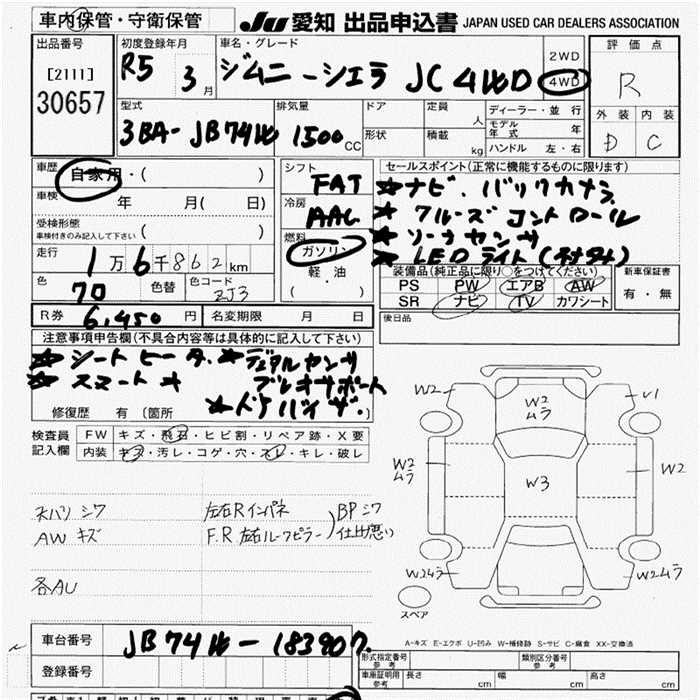 車内保管・守衛保管
JU 愛知 出品申込書 JAPAN USED CAR DEALERS ASSOCIATION
出品番号
[2111]
30657
初度登録年月
R5 3月
車名・グレード
ジムニーシエラ JC 4WD
2WD
4WD
評価点
R
外装 内装
D C
型式
3BA-JB74W
排気量
1500cc
ドア
形状
定員 人
積載 kg
ディーラー・並行
モデル年式 年
ハンドル 左・右
車歴
自家用・( )
車検
年 月( 日)
受検形態
車検付きのみ記入して下さい ( )
走行
1万6千862km
色
70
色替
色コード
ZJ3
シフト
FAT
冷房
AAC
燃料
ガソリン
軽・油
( )
セールスポイント(正常に機能するものに限ります)
★ナビ.バックカメラ
★クルーズコントロール
★ソーナセンサ
★LEDライト(オゾ付)
装備品(純正品に限り○をつけてください)
PS PW エアB AW
SR ナビ TV カワシート
新車保証書
有・無
R券 6,450円
名変期限 月 日
後日品
注意事項申告欄(不具合内容等は具体的に記入して下さい)
★シートヒータ.★デュアルセンサ
★スマートキ ブレキサポート
★ドアバイザ.
修復歴 有(箇所 )
検査員記入欄
FW キズ・飛石・ヒビ割・リペア跡・X要
内装 キズ・汚レ・コゲ・穴・スレ・キレ・破レ
天ハリ シワ
AW キズ
各AU
左右Rインパネ
F.R 左右ルーフピラー
BPシワ
仕上悪い
W2
W2
ムラ
V1
W2
ムラ
W3
W2
W2ムラ
W2ムラ
スペア
A-キズ E-エクボ U-凹み W-補修跡 S-サビ C-腐食 XX-交換済
車台番号
JB74W-183907.
登録番号
形式指定番号
参考
類別区分番号
参考
車庫証明用
参考
長さ cm
幅 cm
高さ cm